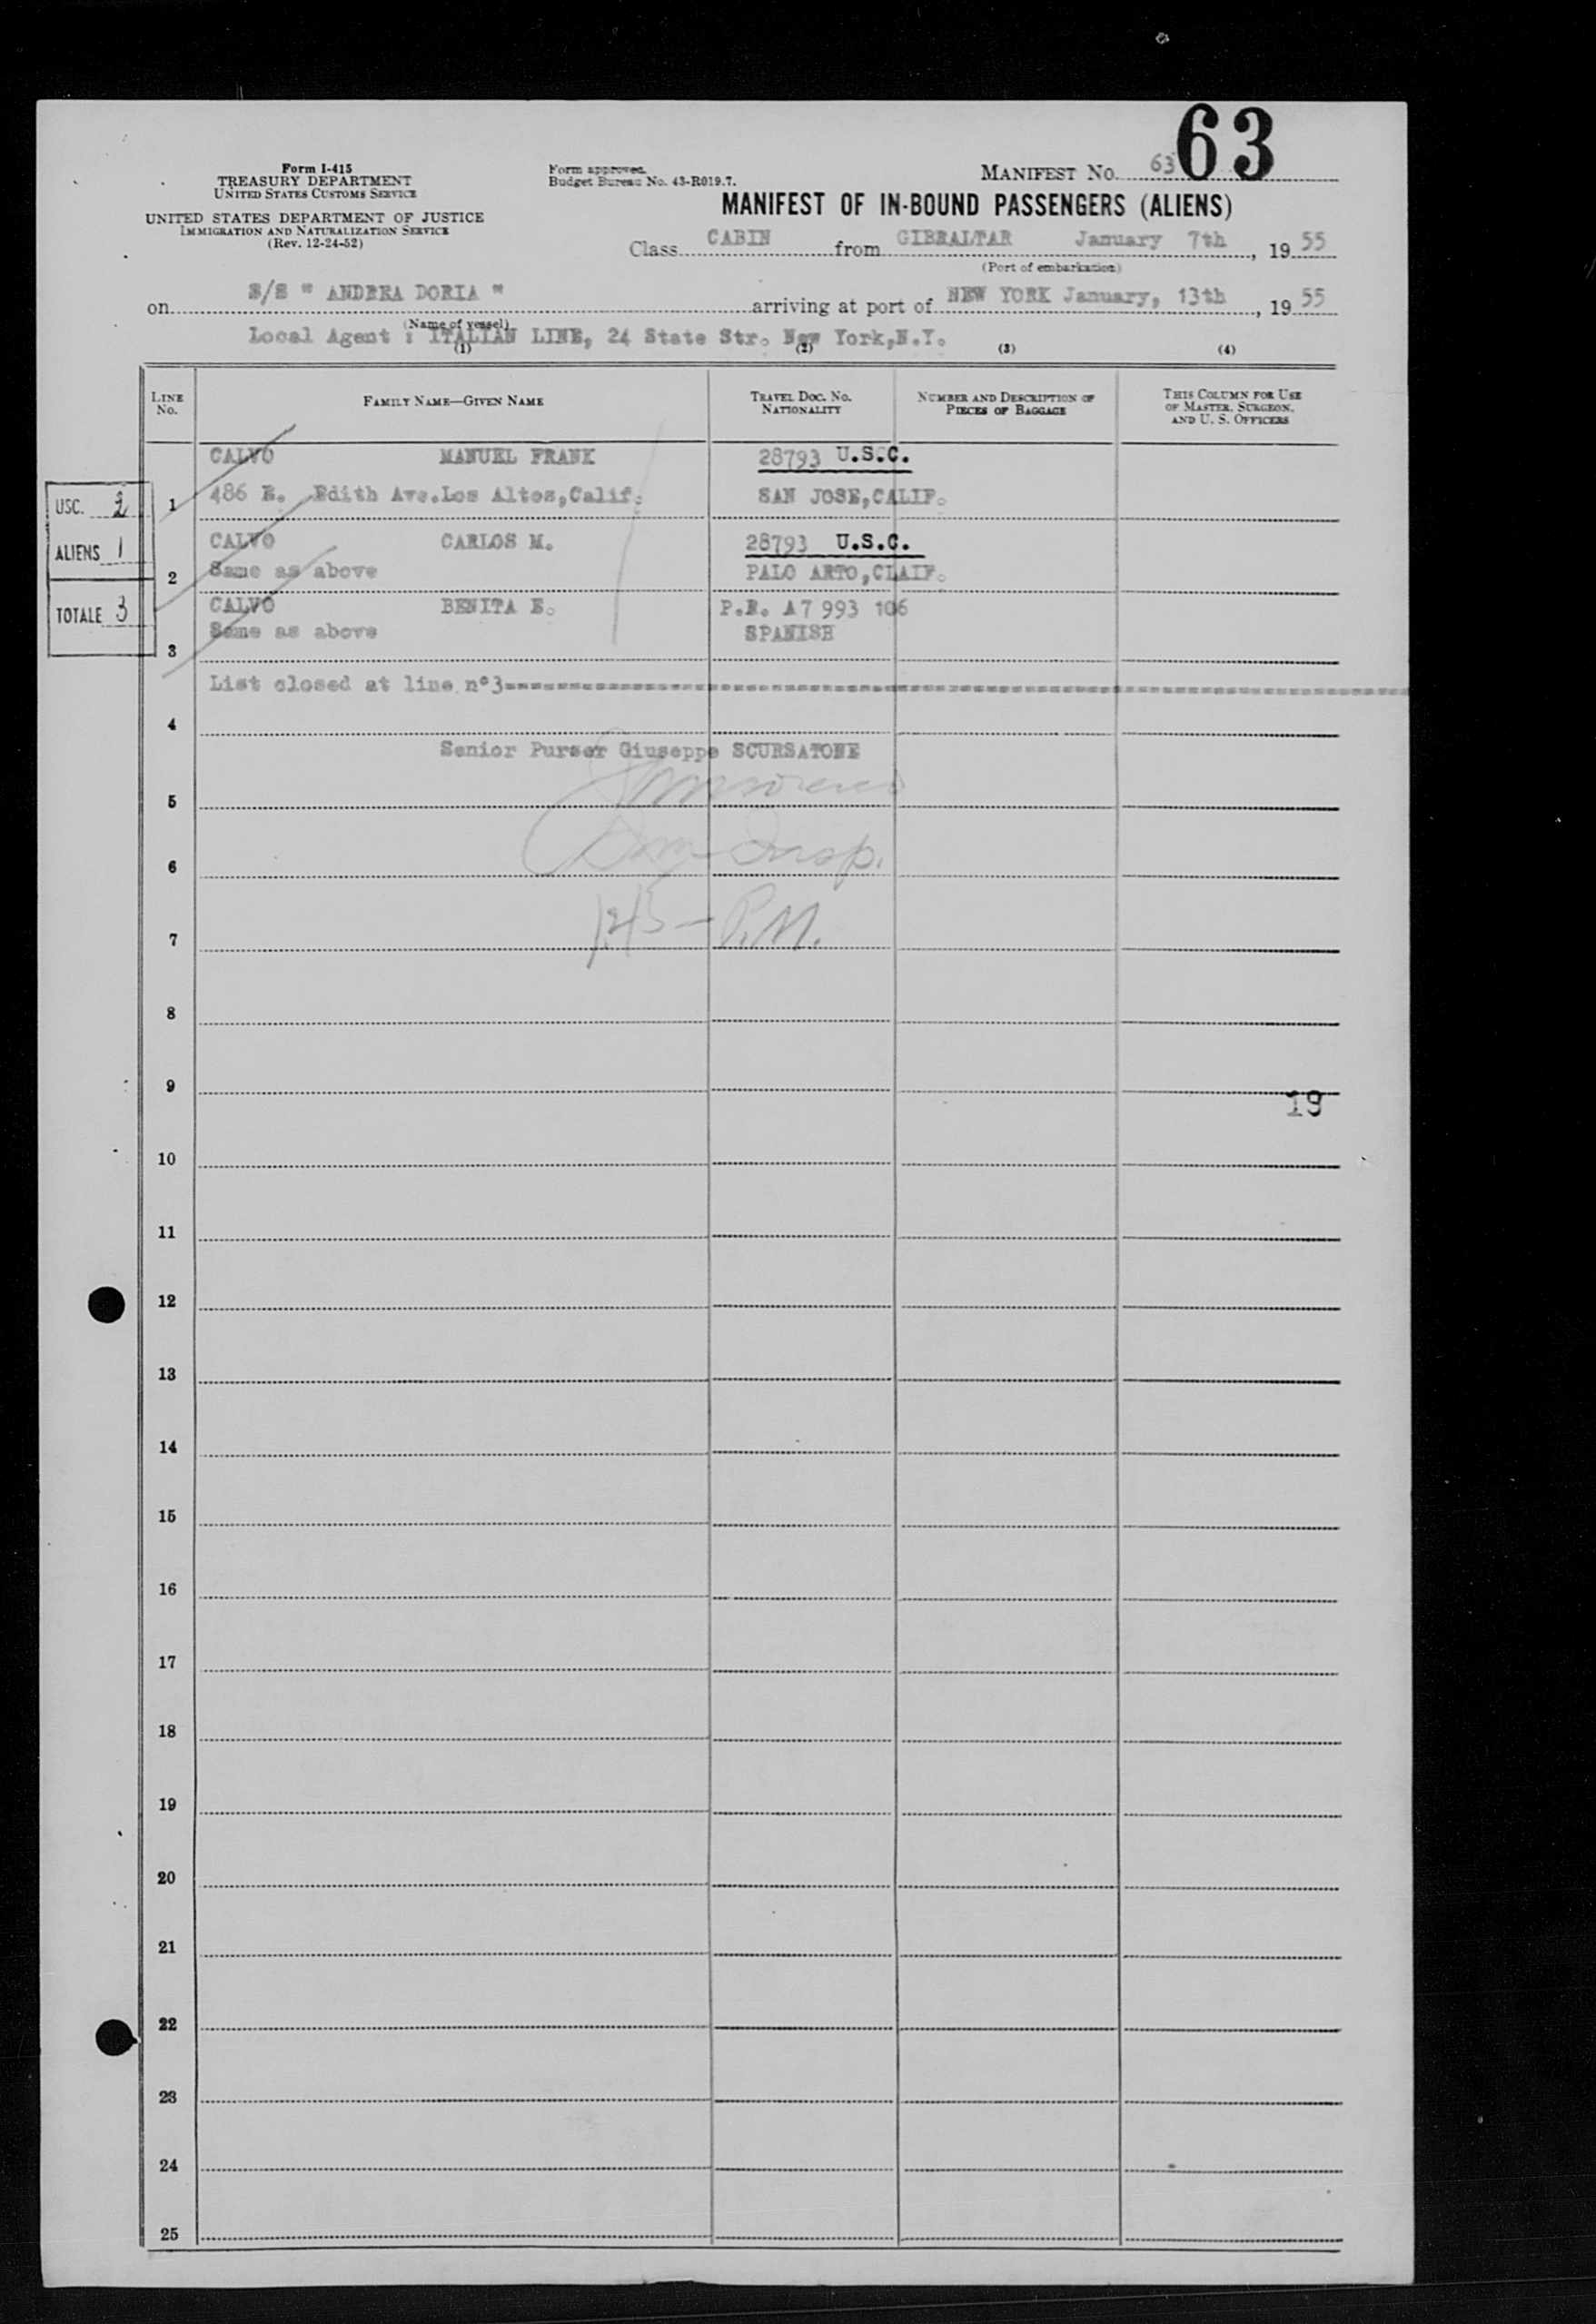 63
Form I-415
TREASURY DEPARTMENT
UNITED STATES CUSTOMS SERVICE
UNITED STATES DEPARTMENT OF JUSTICE
IMMIGRATION AND NATURALIZATION SERVICE
(Rev. 12-24-52)
Form approved.
Budget Bureau No. 43-R019.7.
MANIFEST No. 63
MANIFEST OF IN-BOUND PASSENGERS (ALIENS)
Class CABIN from GIBRALTAR January 7th, 1955
(Port of embarkation)
on S/S " ANDREA DORIA " arriving at port of NEW YORK January, 13th, 1955
(Name of vessel)
Local Agent : ITALIAN LINE, 24 State Str. New York,N.Y.
(1) (2) (3) (4)
LINE No. FAMILY NAME—GIVEN NAME TRAVEL DOC. NO. NATIONALITY NUMBER AND DESCRIPTION OF PIECES OF BAGGAGE THIS COLUMN FOR USE OF MASTER, SURGEON, AND U. S. OFFICERS
CALVO MANUEL FRANK 28793 U.S.C.
1 486 E. Edith Ave.Los Altos,Calif. SAN JOSE,CALIF.
CALVO CARLOS M. 28793 U.S.C.
2 Same as above PALO ARTO,CLAIF.
CALVO BENITA E. P.R. A7 993 106
3 Same as above SPANISH
USC. 2
ALIENS 1
TOTALE 3
List closed at line n°3
4
Senior Purser Giuseppe SCURSATONE
5
6 Imm Insp.
7 1,45 — P.M.
8
9
19
10
11
12
13
14
15
16
17
18
19
20
21
22
23
24
25